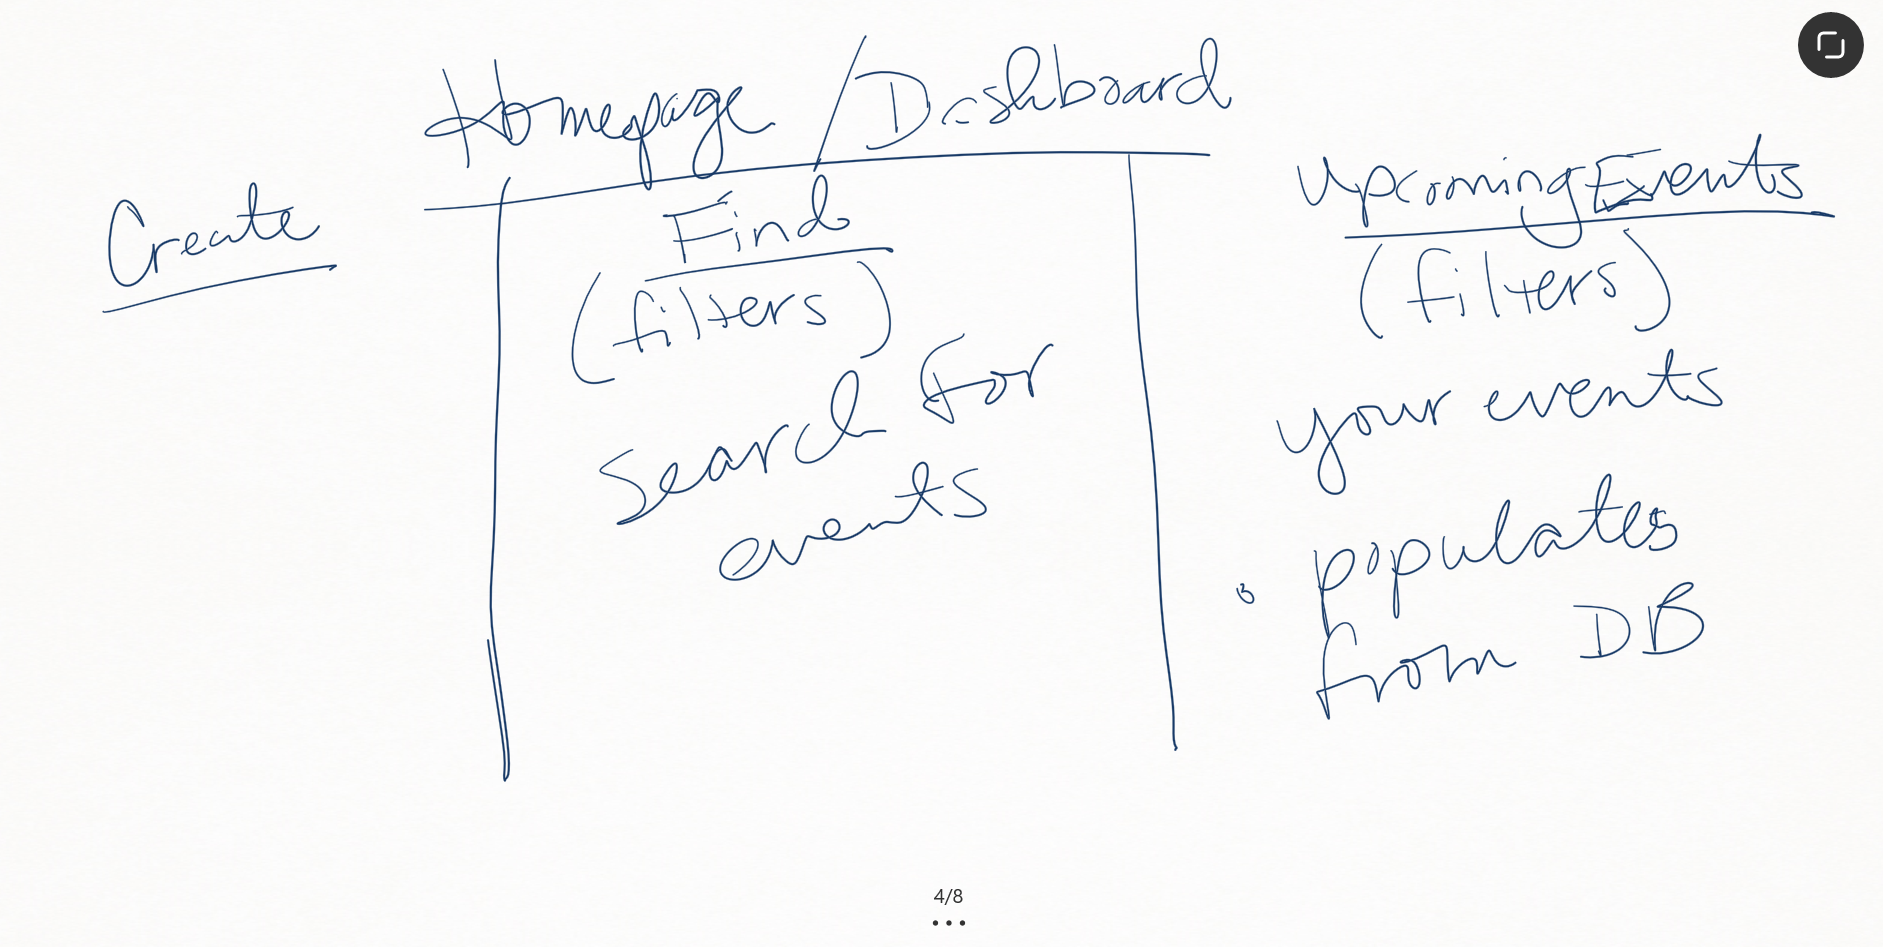 Homepage / Dashboard
Create
Find
(filters)
Search For
events
Upcoming Events
(filters)
your events
populates
from DB
4/8